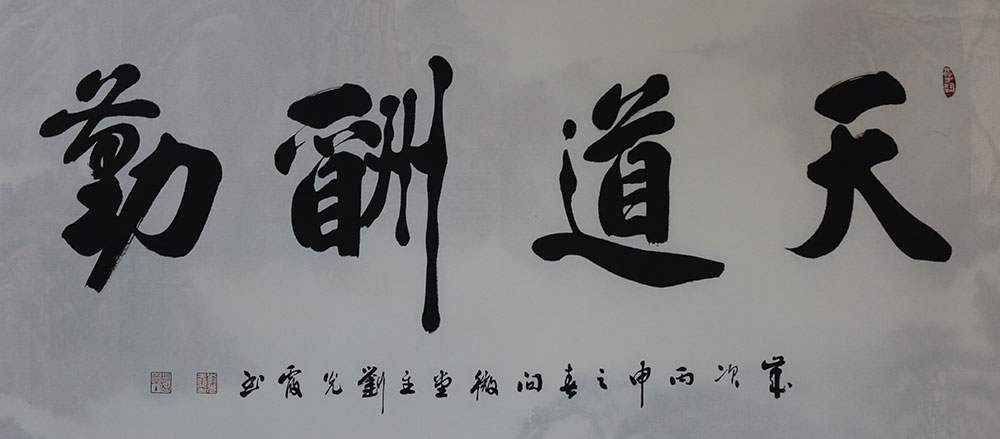 天道酬勤
歲次丙申之春问微堂主劉光霞書